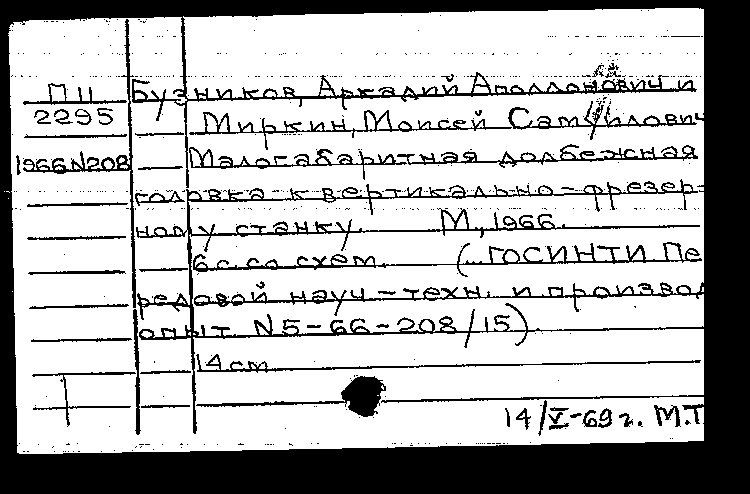 П 11 Бузников, Аркадий Аполлонович и
2295 Миркин, Моисей Самуилович
1966 N208 Малогабаритная долбежная
головка к вертикально-фрезер-
ному станку. М., 1966.
6 с. со схем. (... ГОСИНТИ Пе
редовой науч-техн. и производ
опыт N5-66-208/15).
14 cm
14/V-69 г. М.Т